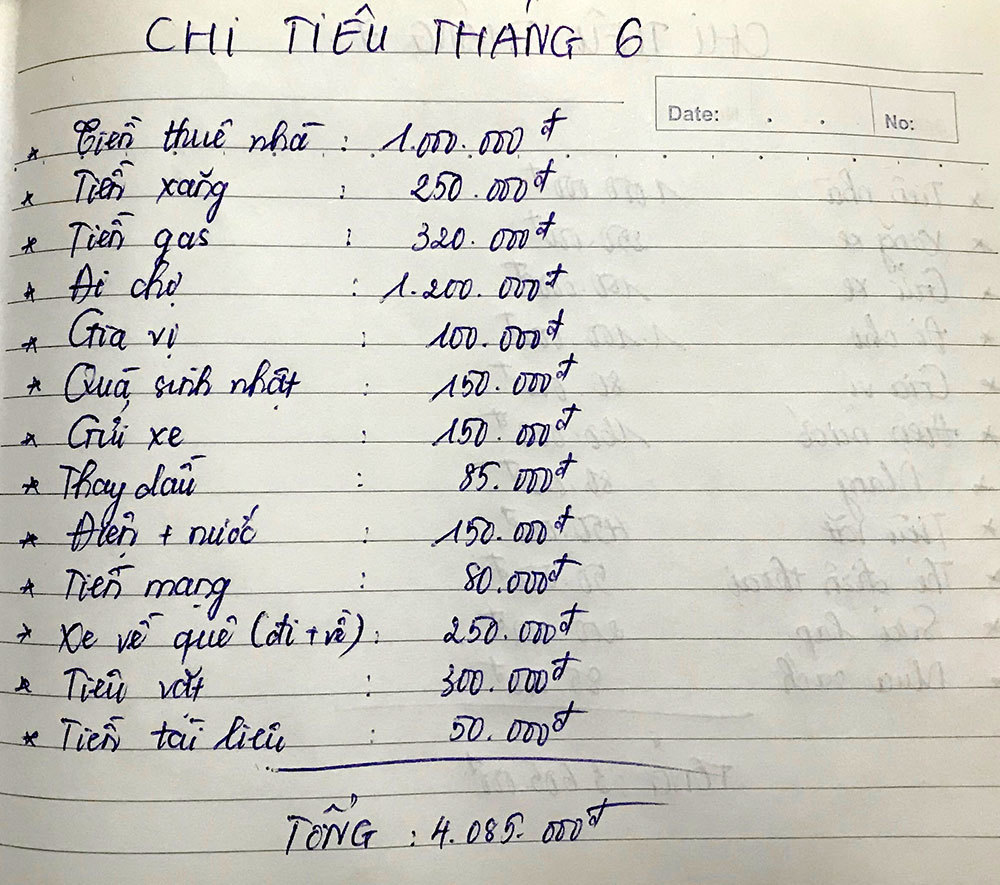 CHI TIÊU THÁNG 6
Date: . . No:
* Tiền thuê nhà : 1.000.000đ
* Tiền xăng : 250.000đ
* Tiền gas : 320.000đ
* Đi chợ : 1.200.000đ
* Gia vị : 100.000đ
* Quà sinh nhật : 150.000đ
* Gửi xe : 150.000đ
* Thay dầu : 85.000đ
* Điện + nước : 150.000đ
* Tiền mạng : 80.000đ
* Xe về quê (đi + về) : 250.000đ
* Tiêu vặt : 300.000đ
* Tiền tài liệu : 50.000đ
TỔNG : 4.085.000đ